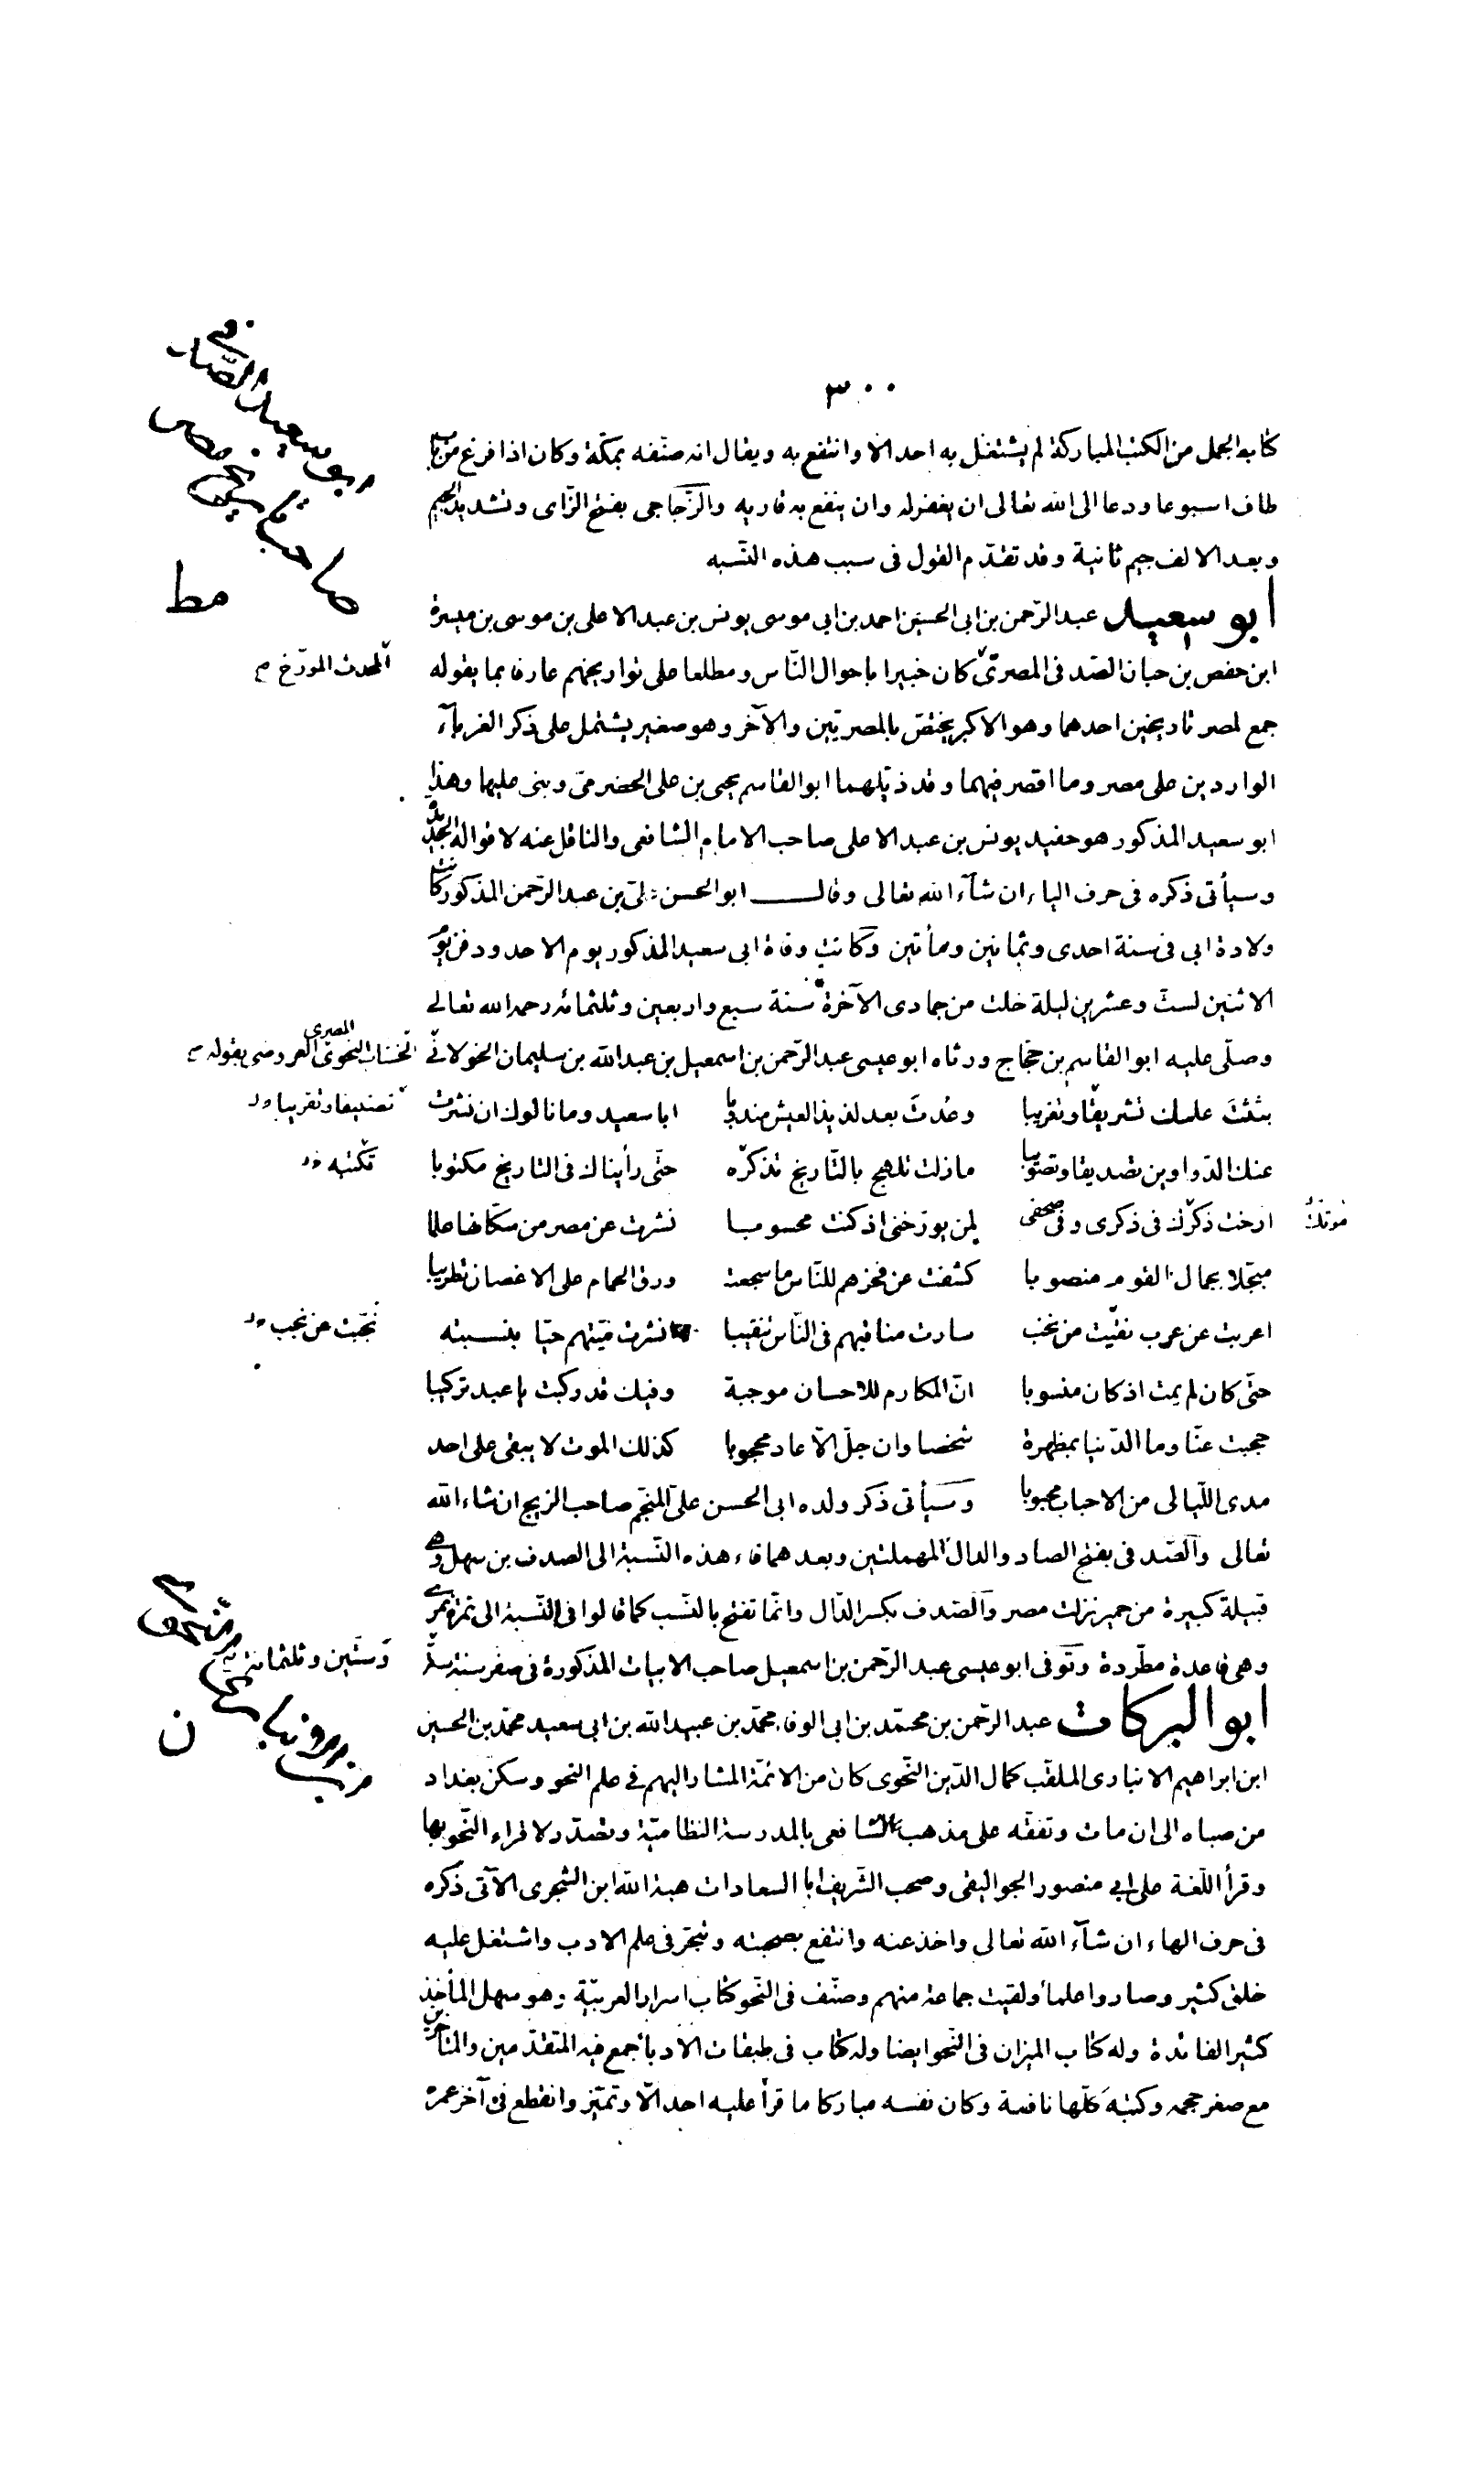 ٣٠٠
كتابه الجمل من الكتب المباركة لم يشتغل به احد الا وانتفع به ويقال انه صنّفه بمكّة وكان اذا فرغ من باب
طاف اسبوعا ودعا الى الله تعالى ان يغفر له وان ينفع به قاريه والزّجاجى بفتح الزّاى وتشديد الجيم
وبعد الالف جيم ثانية وقد تقدّم القول فى سبب هذه النّسبه
ابو سعيد عبد الرّحمن بن ابى الحسين احمد بن ابى موسى يونس بن عبد الاعلى بن موسى بن ميسرة
ابن حفص بن حيان الصّدفى المصرىّ كان خبيرا باحوال النّاس ومطلعا على تواريخهم عارفا بما يقوله
المحدث المورّخ م
جمع لمصر تاريخين احدهما وهو الاكبر يختصّ بالمصريّين والآخر وهو صغير يشتمل على ذكر الغربآء
الواردين على مصر وما اقصر فيهما وقد ذيّلهما ابو القاسم يحيى بن على الحضرمىّ وبنى عليها وهذا
ابو سعيد المذكور هو حفيد يونس بن عبد الاعلى صاحب الامام الشافعى والناقل عنه لاقواله الجديدة
وسيأتى ذكره فى حرف الياء ان شآء الله تعالى وقال ابو الحسن علىّ بن عبد الرّحمن المذكور كانت
ولادة ابى فى سنة احدى وثمانين ومأتين وكانت وفاة ابى سعيد المذكور يوم الاحد ودفن يوم
الاثنين لستّ وعشرين ليلة خلت من جمادى الآخرة سنة سبع واربعين وثلثمائه رحمه الله تعالى
وصلّى عليه ابو القاسم بن حجّاج ورثاه ابو عيسى عبد الرّحمن بن اسمعيل بن عبد الله بن سليمان الخولانىّ
الخشّاب المصرى النحوىّ العروضى بقوله م
بثثتَ علمك تشريقا وتغريبا وعُدتَ بعد لذيذ العيش مندوبا ابا سعيد وما نالوك ان نشرت
تصنيفا وتقريبا
عنك الدّواوين تصديقا وتصويبا مازلت تلهج بالتّاريخ تذكرّه حتّى رأيناك فى التاريخ مكتوبا
تكتبه
ارخت ذكرك فى ذكرى وفى صحفى لمن يورخنى اذ كنت محسوبا نشرت عن مصر من سكّانها علما
موتك
مبجّلا بجمال القوم منصوبا كشفت عن فخرهم للنّاس ما سجعت ورق الحمام على الاغصان تطريبا
اعربت عن عرب نقيّت من نخب سارت مناقبهم فى النّاس تنقيبا نشرت ميّتهم حيّا بنسبته
نجّبت عن نجب
حتّى كان لم يمت اذ كان منسوبا انّ المكارم للاحسان موجبة وفيك قد ركبت يا عبد تركيبا
حجبت عنّا وما الدّنيا بمظهرة شخصا وان جلّ الّا عاد محجوبا كذلك الموت لا يبقى على احد
مدى اللّيالى من الاحباب محبوبا وسيأتى ذكر ولده ابى الحسن علىّ المنجّم صاحب الزيج ان شاء الله
تعالى والصّدفى بفتح الصاد والدال المهملتين وبعدهما فاء هذه النّسبة الى الصدف بن سهل وهى
قبيلة كبيرة من حمير نزلت مصر والصّدف بكسر الدّال وانّما تفتح بالنّسب كما قالوا فى النّسبة الى نمرة نمرى
وهى قاعدة مطّردة وتوفى ابو عيسى عبد الرّحمن بن اسمعيل صاحب الابيات المذكورة فى صفر سنة ستّ
وستّين وثلثمائة
ابو البركات عبد الرّحمن بن محمّد بن ابى الوفاء محمّد بن عبيد الله بن ابى سعيد محمّد بن الحسين
ابن ابراهيم الانبارى الملقّب كمال الدّين النّحوى كان من الائمّة المشار اليهم فى علم النحو وسكن بغداد
من صباه الى ان مات وتفقّه على مذهب الشافعى بالمدرسة النظاميّة وتصدّر لاقراء النّحو بها
وقرأ اللّغة على ابى منصور الجواليقى وصحب الشّريف ابا السعادات هبة الله ابن الشجرى الآتى ذكره
فى حرف الهاء ان شآء الله تعالى واخذ عنه وانتفع بصحبته وتبحّر فى علم الادب واشتغل عليه
خلق كثير وصاروا علمأ ولقيت جماعة منهم وصنّف فى النّحو كتاب اسرار العربيّة وهو سهل المأخذ
كثير الفائدة وله كتاب الميزان فى النّحو ايضا وله كتاب فى طبقات الادبأ جمع فيه المتقدّمين والمتاخّرين
مع صغر حجمه وكتبه كلّها نافعة وكان نفسه مباركا ما قرأ عليه احد الّا وتميّز وانقطع فى آخر عمره
ابو سعيد الصّدفى
صاحب تاريخ مصر
مط
ن